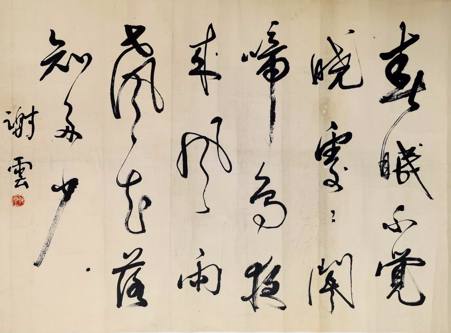 春眠不覺
曉處〻聞
啼鳥夜
來風雨
聲花落
知多少
謝雲